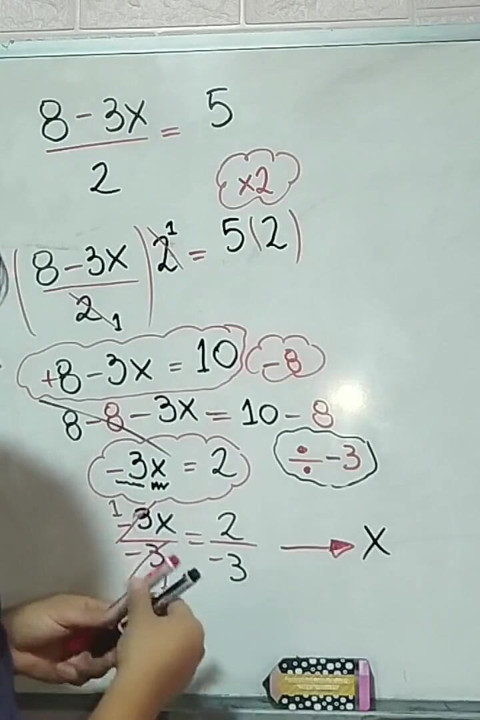 8 - 3x / 2 = 5
×2
(8 - 3x / 2 1) 2 1 = 5(2)
+8 - 3x = 10 -8
8 - 8 - 3x = 10 - 8
-3x = 2 ÷ -3
1 -3x / -3 = 2 / -3 → x